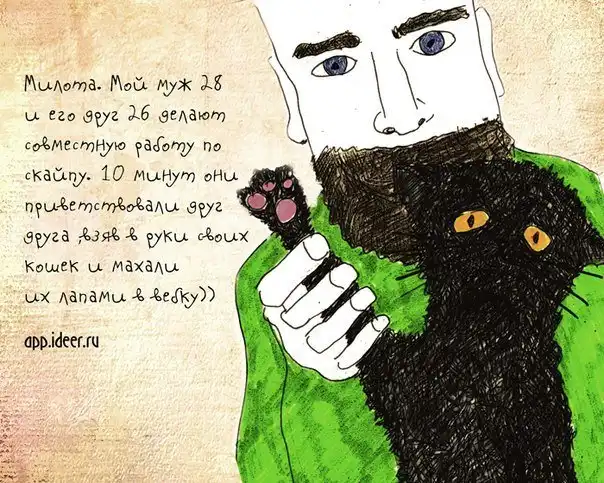 Милота. Мой муж 28
и его друг 26 делают
совместную работу по
скайпу. 10 минут они
приветствовали друг
друга ,взяв в руки своих
кошек и махали
их лапами в вебку))
app.ideer.ru